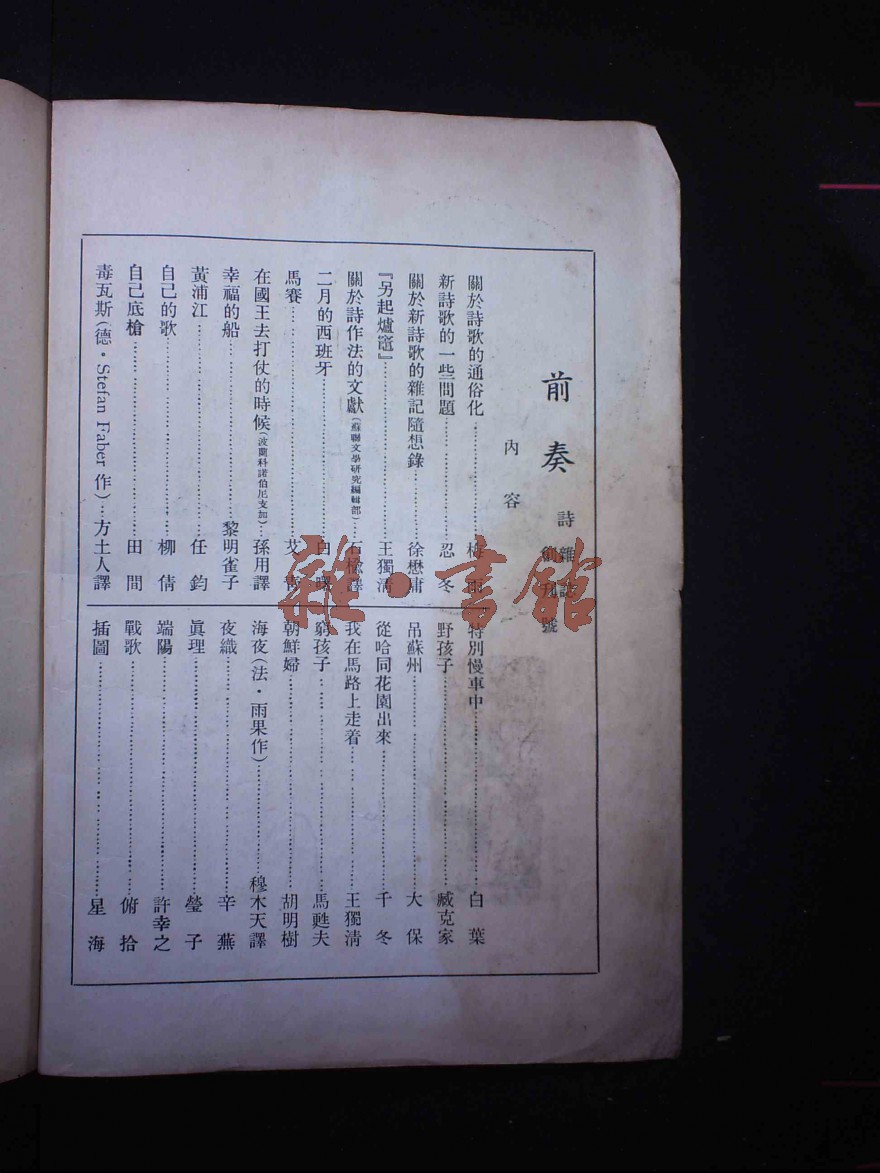 前奏
詩雜誌
創刊號
內容
關於詩歌的通俗化……梅雨
新詩歌的一些問題……忍冬
關於新詩歌的雜記隨想錄……徐懋庸
『另起爐竈』……王獨淸
關於詩作法的文獻(蘇聯文學研究編輯部)……石楡譯
二月的西班牙……白曙
馬賽……艾靑
在國王去打仗的時候(波蘭科諾伯尼支加)…孫用譯
幸福的船……黎明雀子
黃浦江……任鈞
自己的歌……柳倩
自己底槍……田間
毒瓦斯(德・Stefan Faber作)…方土人譯
特別慢車中……白葉
野孩子……臧克家
吊蘇州……大保
從哈同花園出來……千冬
我在馬路上走着……王獨淸
窮孩子……馬甦夫
朝鮮婦……胡明樹
海夜(法・雨果作)……穆木天譯
夜織……辛蕪
眞理……瑩子
端陽……許幸之
戰歌……俯拾
插圖……星海
雜・書館